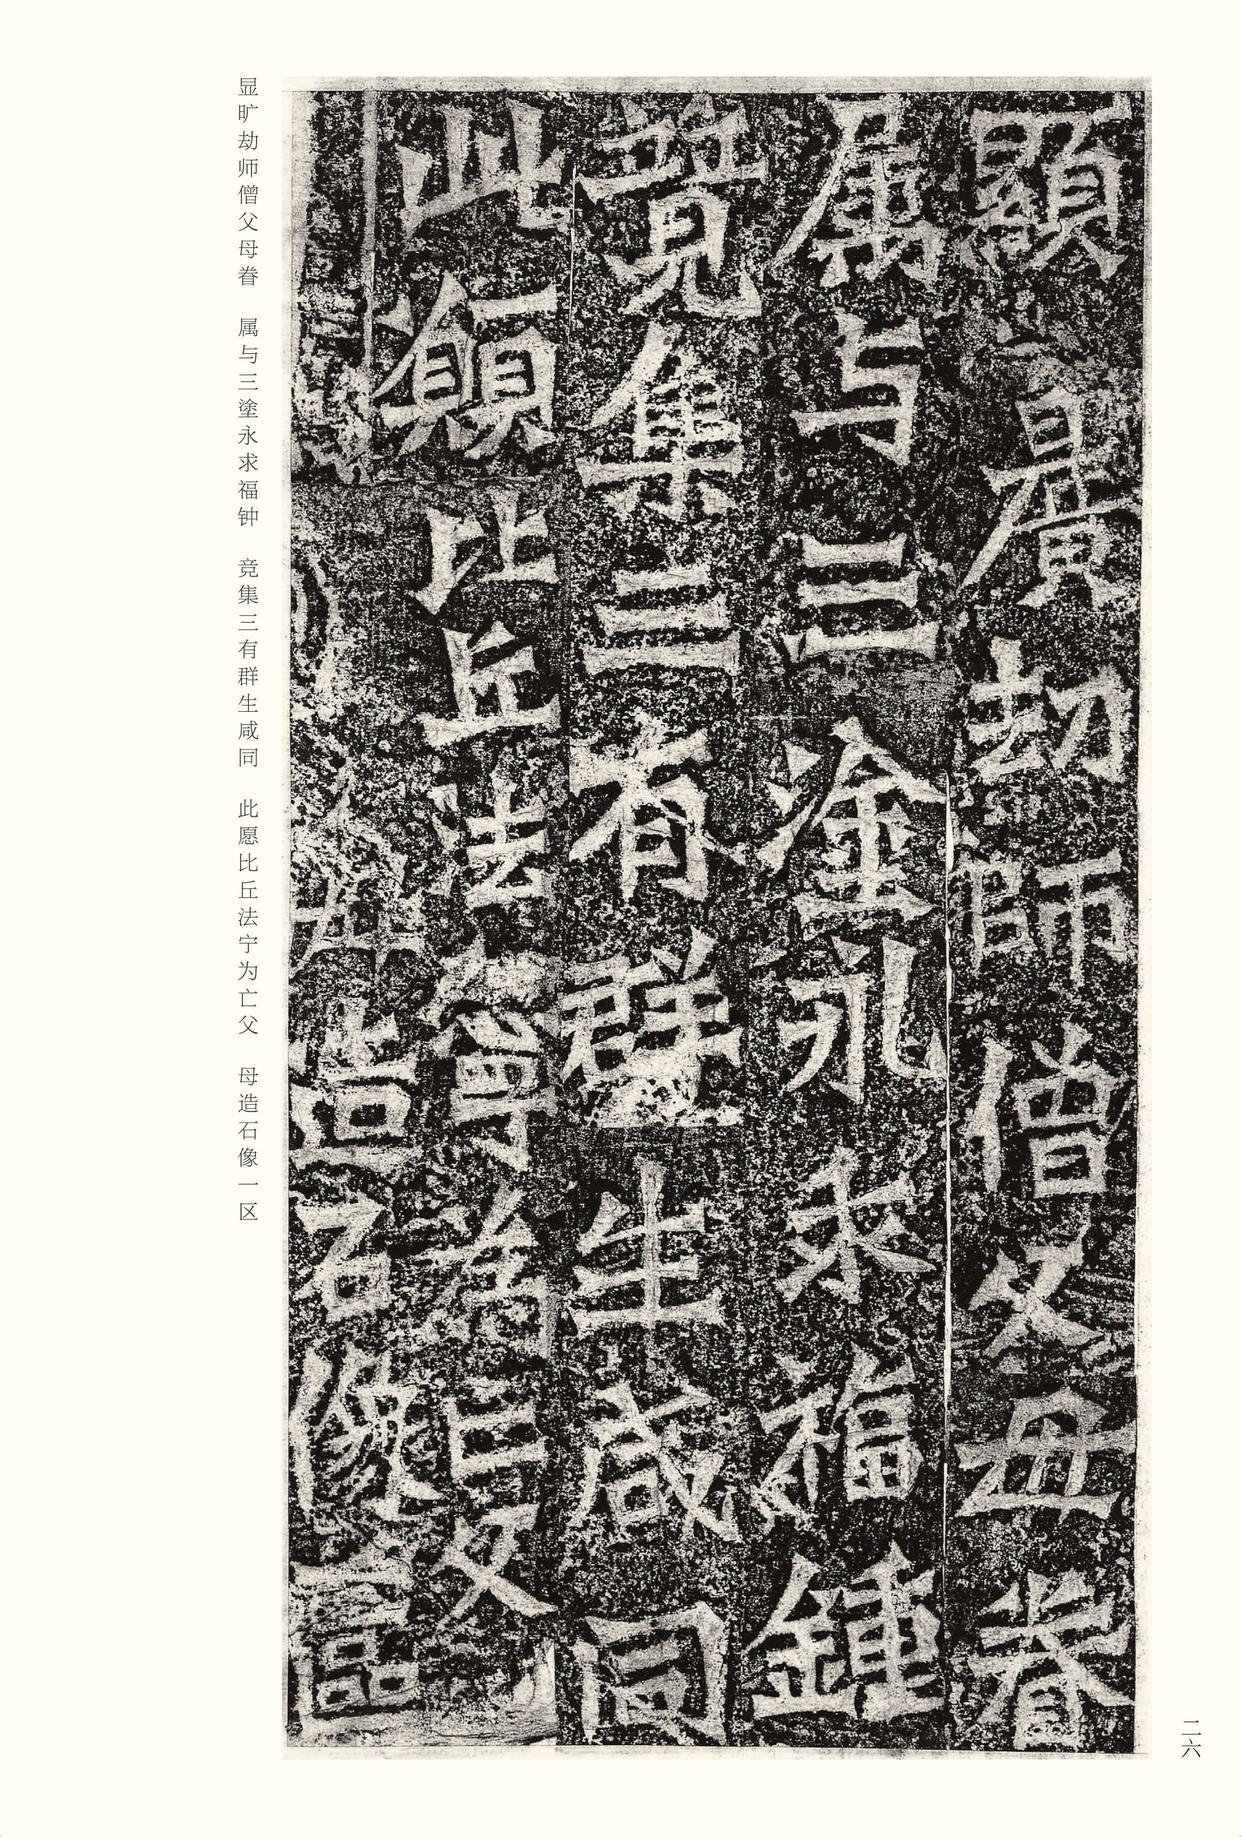 顯曠劫師僧父母眷
属与三塗永求福鍾
竸集三有群生咸同
此願比丘法寧為亡父
母造石像區
显旷劫师僧父母眷　属与三塗永求福钟　竞集三有群生咸同　此愿比丘法宁为亡父　母造石像一区
二六